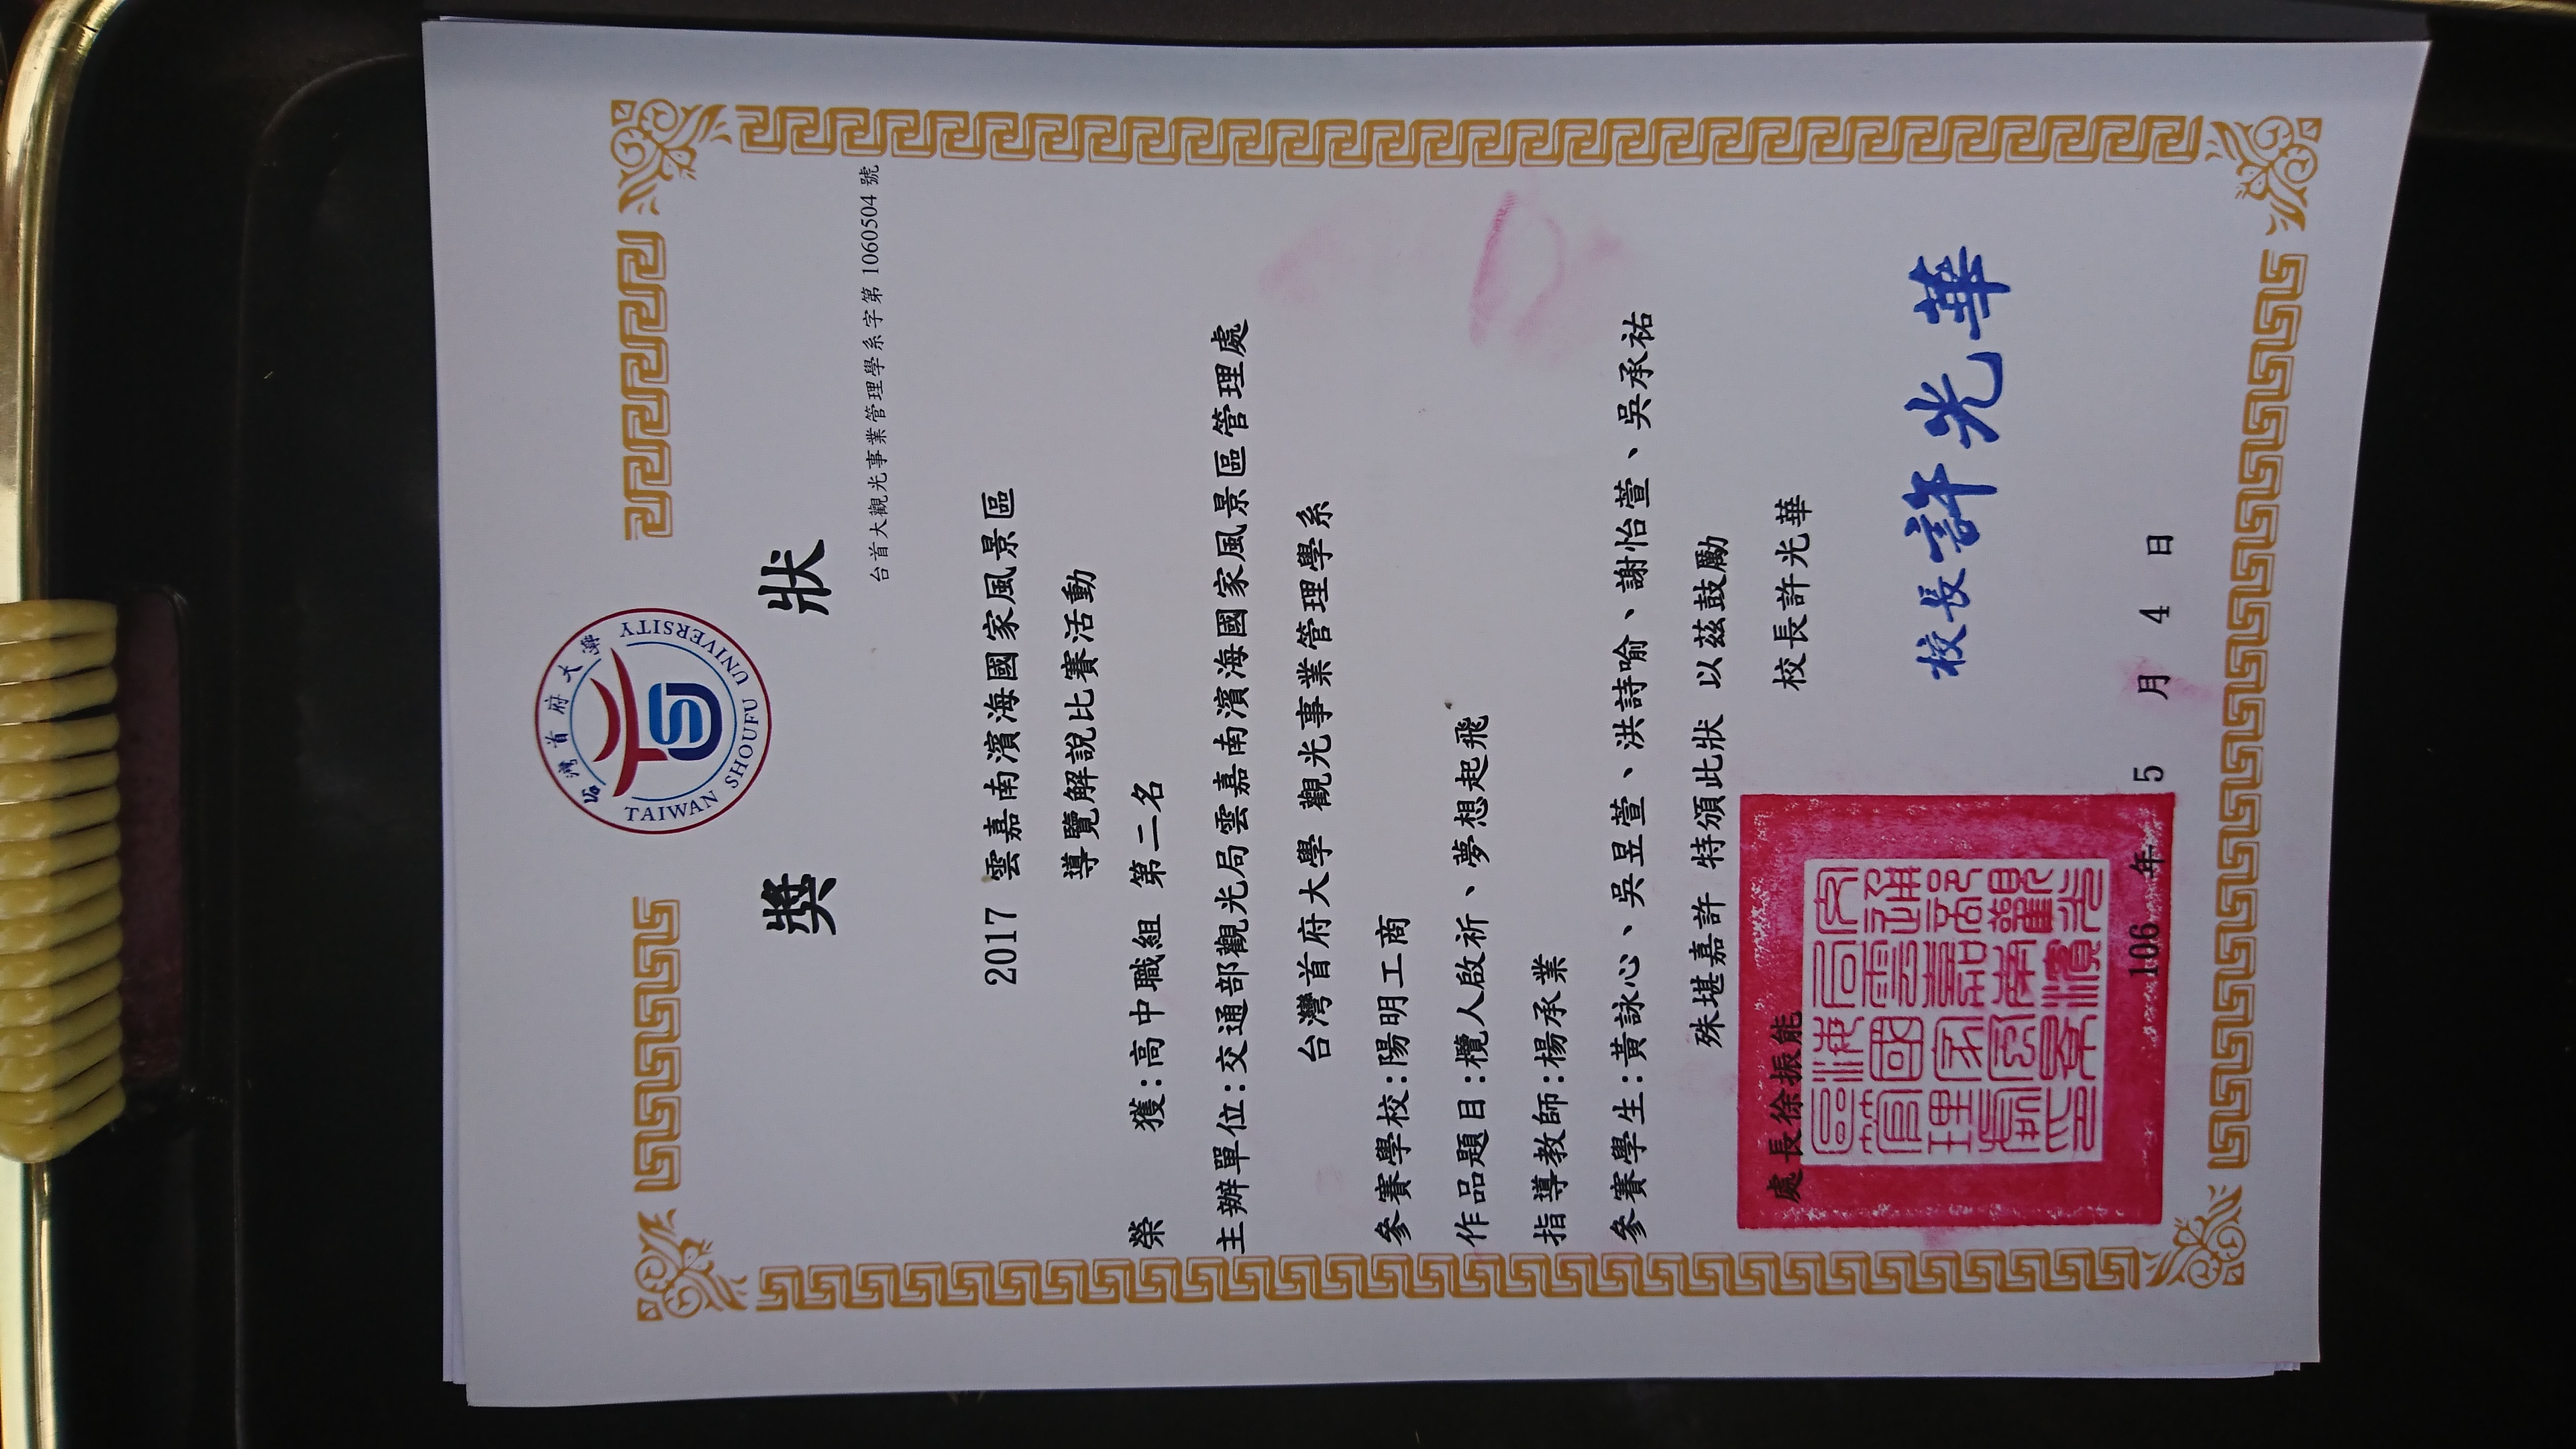 台灣首府大學
TAIWAN SHOUFU UNIVERSITY
獎 狀
台首大觀光事業管理學系字第 1060504 號
2017 雲嘉南濱海國家風景區
導覽解說比賽活動
榮 獲:高中職組 第二名
主辦單位:交通部觀光局雲嘉南濱海國家風景區管理處
台灣首府大學 觀光事業管理學系
參賽學校:陽明工商
作品題目:欖人啟祈、夢想起飛
指導教師:楊承業
參賽學生:黃詠心、吳昱萱、洪詩喻、謝怡萱、吳承祐
殊堪嘉許 特頒此狀 以茲鼓勵
處長徐振能
校長許光華
校長許光華
106 年 5 月 4 日